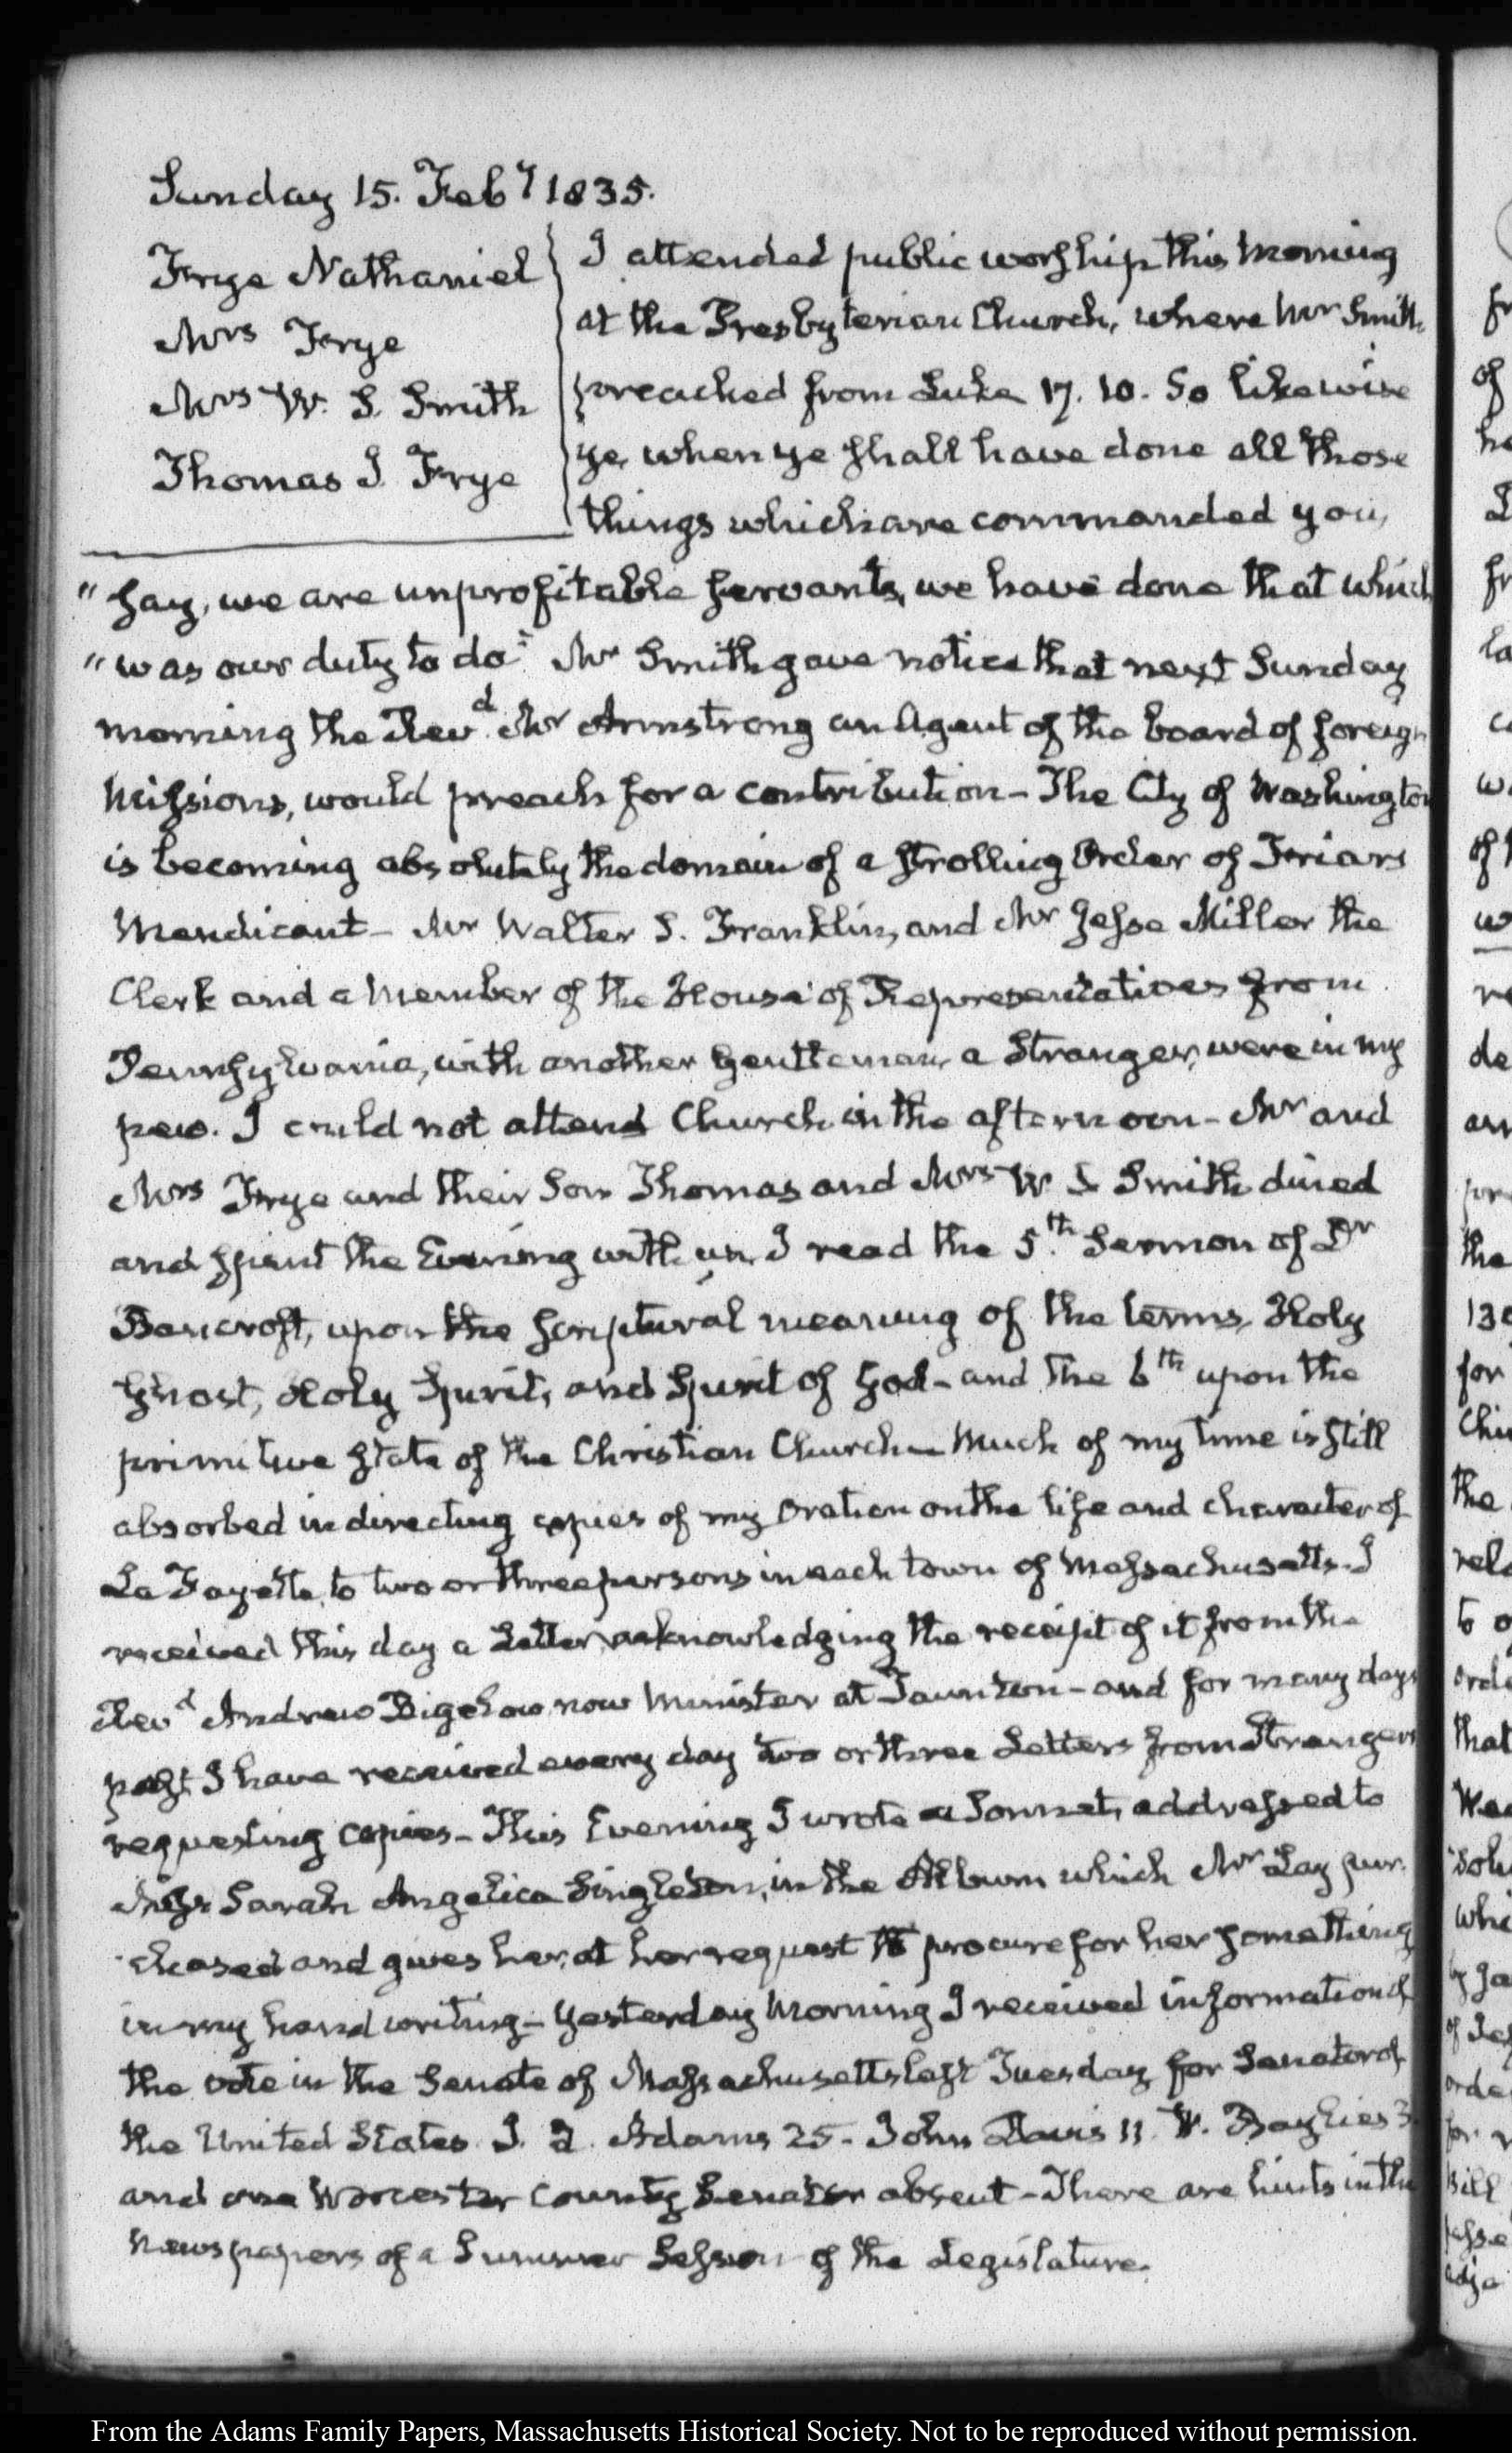 Sunday 15. Feby 1835.
Frye Nathaniel
Mrs Frye
Mrs W. S. Smith
Thomas J. Frye
I attended public worship this morning
at the Presbyterian Church, where Mr Smith
preached from Luke 17. 10. So likewise
ye, when ye shall have done all those
things which are commanded you,
" say, we are unprofitable servants, we have done that which
" was our duty to do." Mr Smith gave notice that next Sunday
morning the Revd. Mr Armstrong an Agent of the board of foreign
Missions, would preach for a contribution – The City of Washington
is becoming absolutely the domain of a strolling Order of Friars
Mendicant – Mr Walter S. Franklin, and Mr Jesse Miller the
Clerk and a Member of the House of Representatives from
Pennsylvania, with another Gentleman, a Stranger, were in my
pew. I could not attend Church in the afternoon – Mr and
Mrs Frye and their Son Thomas and Mrs W S Smith dined
and spent the Evening with us. I read the 5th. Sermon of Dr
Bancroft, upon the scriptural meaning of the terms, Holy
Ghost, Holy Spirit, and Spirit of God – and the 6th upon the
primitive state of the Christian Church – Much of my time is still
absorbed in directing copies of my Oration on the life and character of
La Fayette, to two or three persons in each town of Massachusetts – I
received this day a Letter, acknowledging the receipt of it from the
Revd Andrew Bigelow now Minister at Taunton – and for many days
past I have received every day two or three Letters from Strangers
requesting copies – This Evening I wrote a Sonnet, addressed to
Miss Sarah Angelica Singleton, in the Album which Mr Lay pur-
-chased and gives her, at her request to procure for her something
in my hand writing – Yesterday Morning I received information of
the vote in the Senate of Massachusetts last Tuesday for Senator of
the United States J. Q. Adams 25 – John Davis 11. W. Baylies 3.
and one Worcester County Senator absent – There are hints in the
Newspapers of a Summer Session of the Legislature.
From the Adams Family Papers, Massachusetts Historical Society. Not to be reproduced without permission.